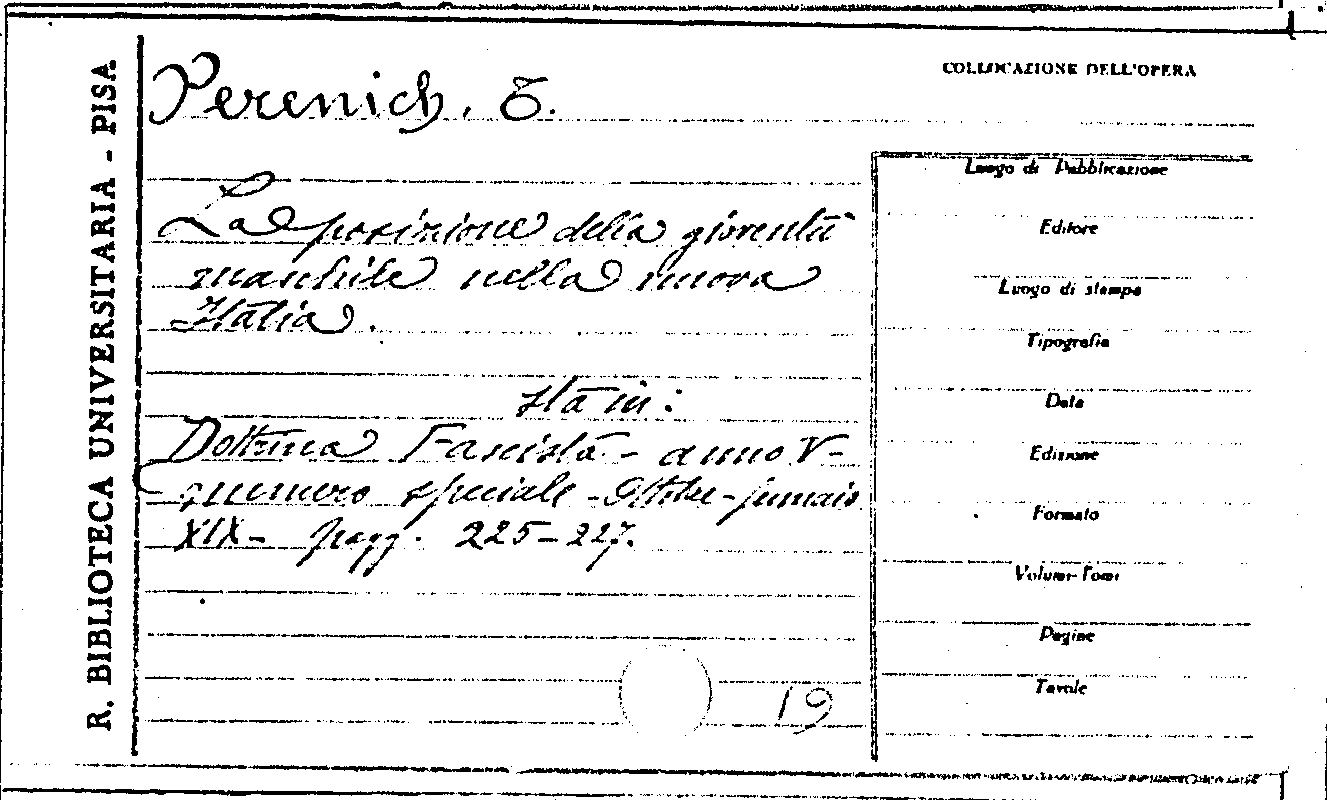 R. BIBLIOTECA UNIVERSITARIA - PISA
Perenich, E.
La posizione della gioventù
maschile nella nuova
Italia.
sta in:
Dottrina Fascista - anno V -
numero speciale - Ottobre - gennaio
XIX - pagg. 225-227.
19
COLLOCAZIONE DELL'OPERA
Luogo di Pubblicazione
Editore
Luogo di stampa
Tipografia
Data
Edizione
Formato
Volumi-Tomi
Pagine
Tavole